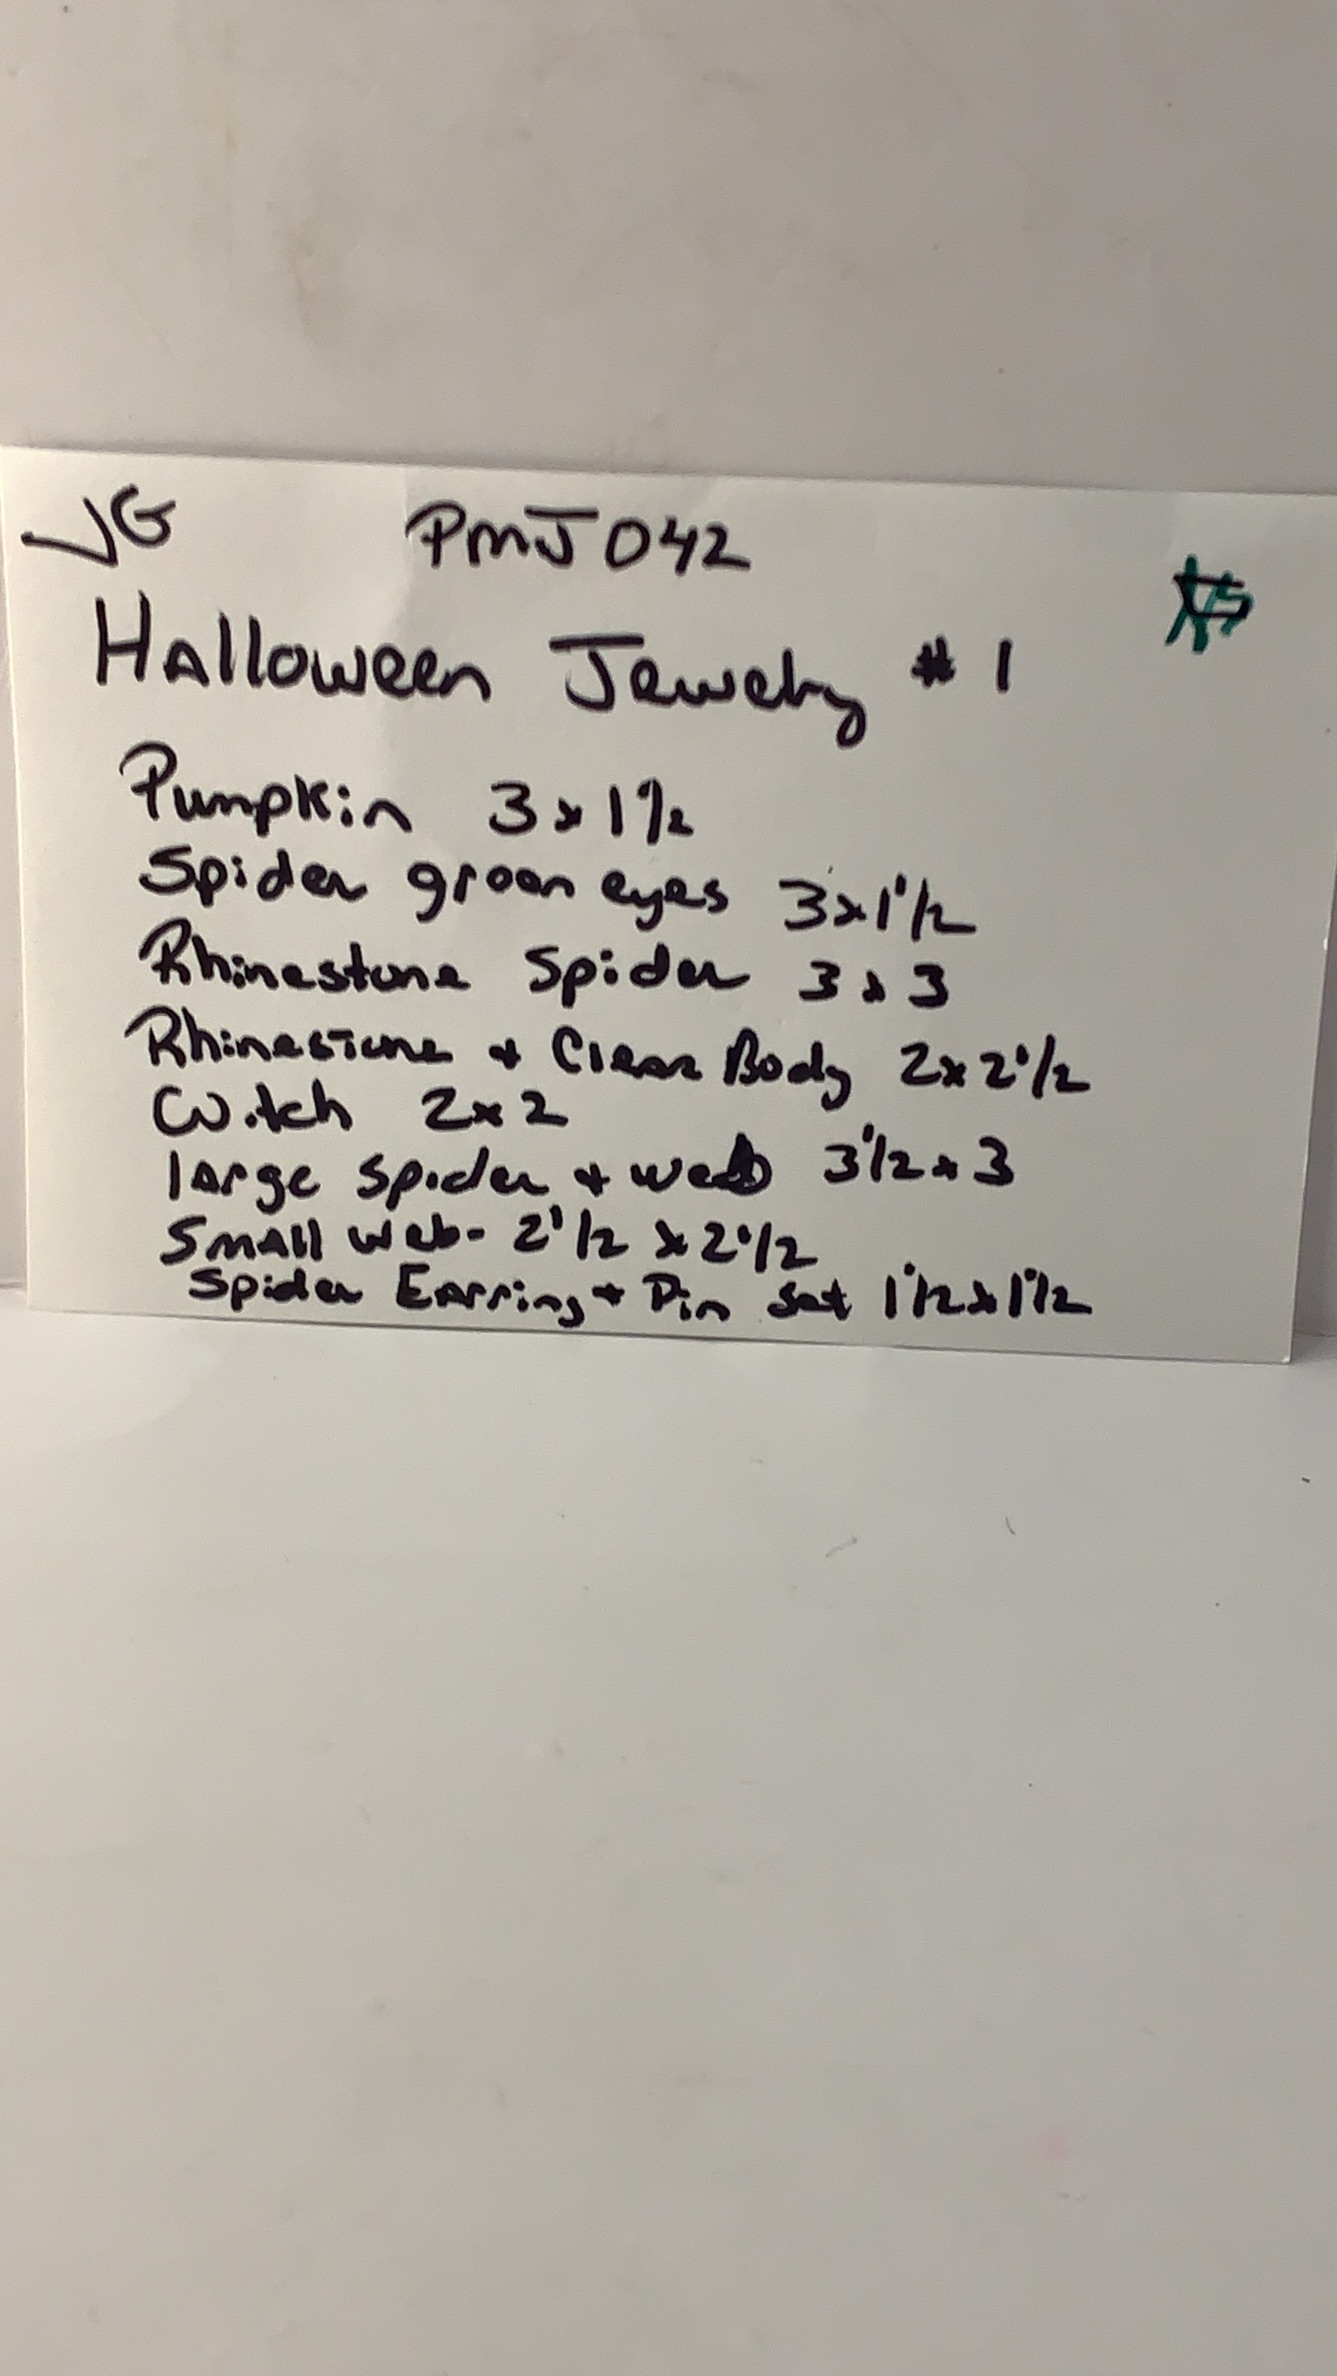 JG PMJ042
Halloween Jewelry # 1
Pumpkin 3 x 1 1/2
Spider green eyes 3 x 1 1/2
Rhinestone Spider 3 x 3
Rhinestone + Clear Body 2 x 2 1/2
Witch 2 x 2
large spider + web 3 1/2 x 3
Small web - 2 1/2 x 2 1/2
Spider Earring + Pin set 1 1/2 x 1 1/2